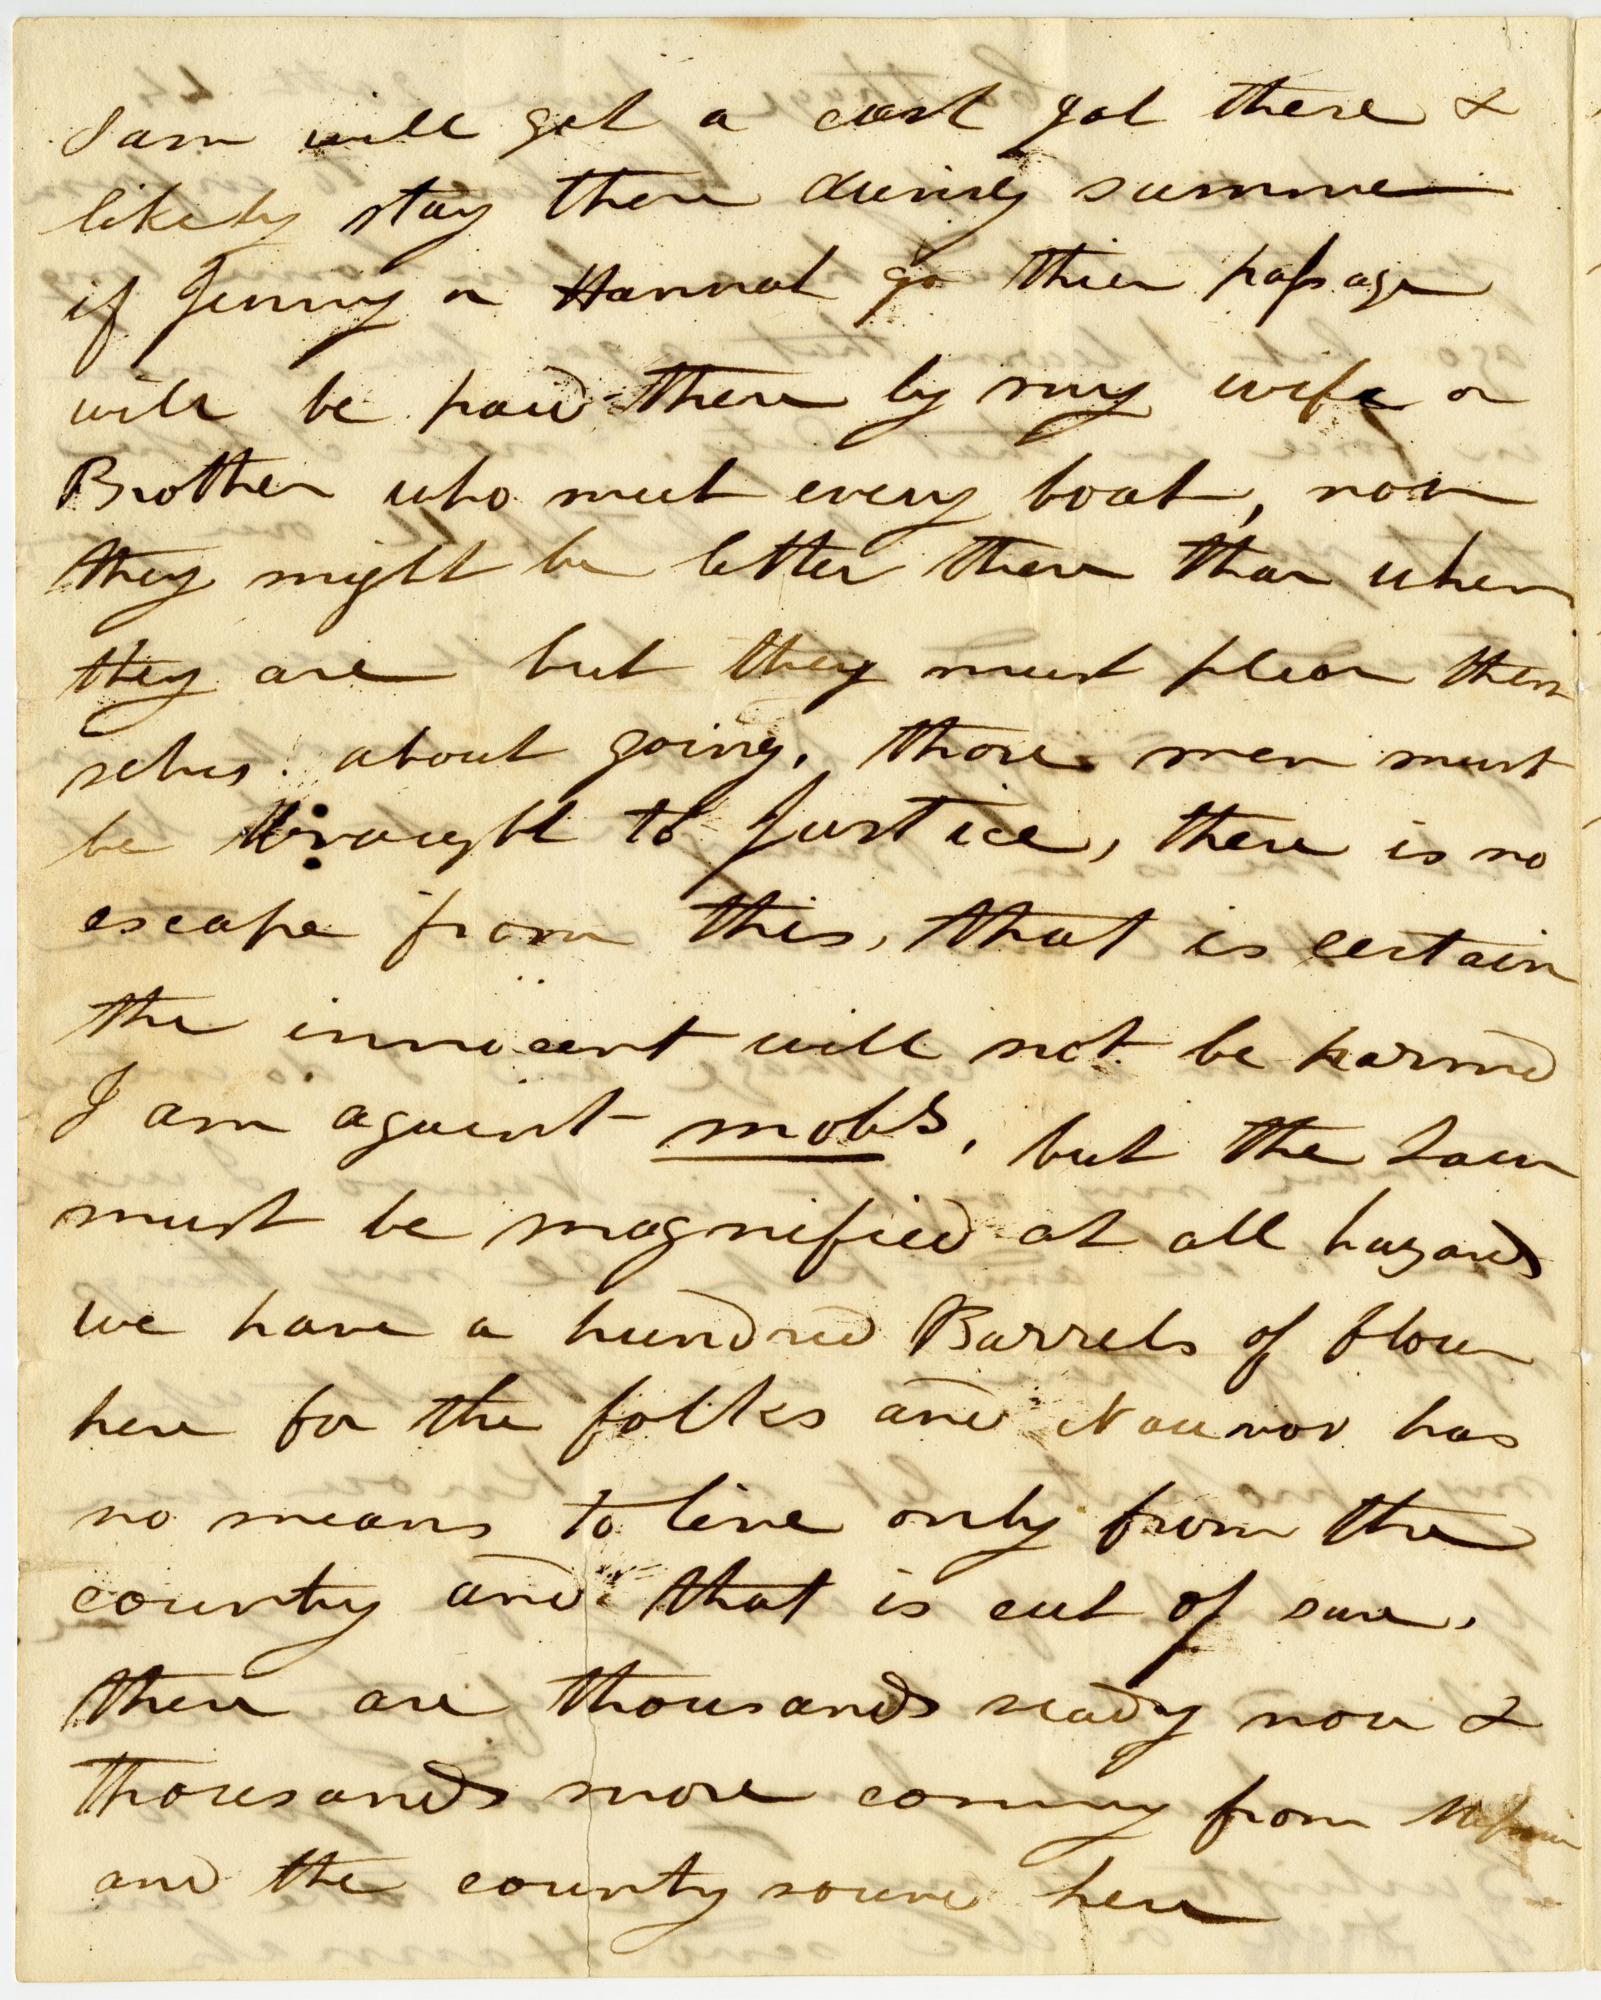 Sam will get a cast gat there &
likely stay there during summer
if Jenny or Hannah go thier passage
will be paid there by my wife or
Brother who meet every boat, now
they might be better there than where
they are but they must pleas them
selves about going, those men must
be brought to Justice, there is no
escape from this, that is certain
the innocent will not be harmed
I am against mobs, but the Law
must be magnified at all hazards
we have a hundred Barrels of flour
here for the folks and Nauvoo has
no means to live only from the
county and that is cut of sure.
there are thousands ready now &
thousands more coming from
and the county round here